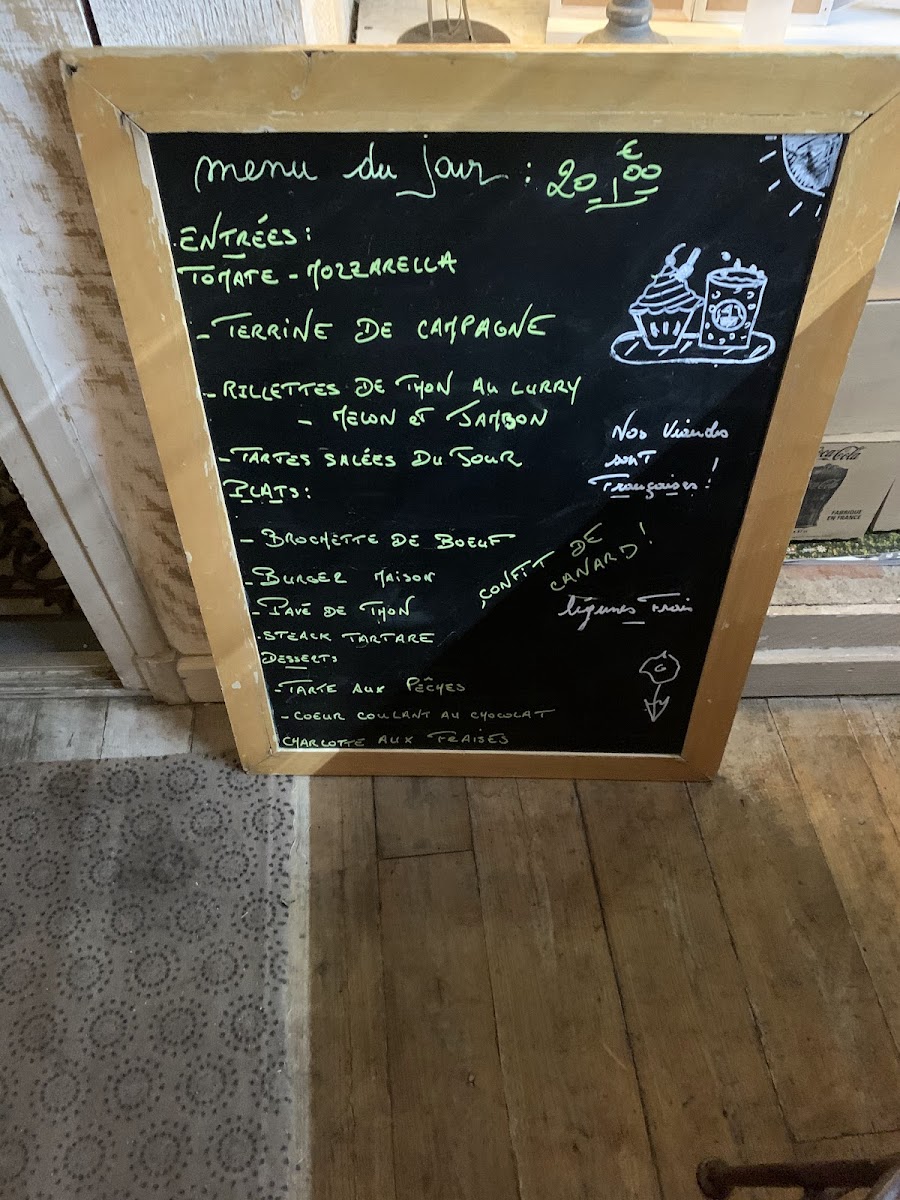 menu du jour : 20,00 €
ENTRÉES :
TOMATE - MOZZARELLA
- TERRINE DE CAMPAGNE
- RILLETTES DE THON AU CURRY
- MELON ET JAMBON
- TARTES SALÉES DU JOUR
PLATS :
- BROCHETTE DE BOEUF
- BURGER MAISON
- PAVÉ DE THON
- STEACK TARTARE
CONFIT DE
CANARD !
DESSERTS
- TARTE AUX PÊCHES
- COEUR COULANT AU CHOCOLAT
CHARLOTTE AUX FRAISES
Nos Viandes
sont
Françaises !
légumes Frais
Coca-Cola
FABRIQUÉ
EN FRANCE